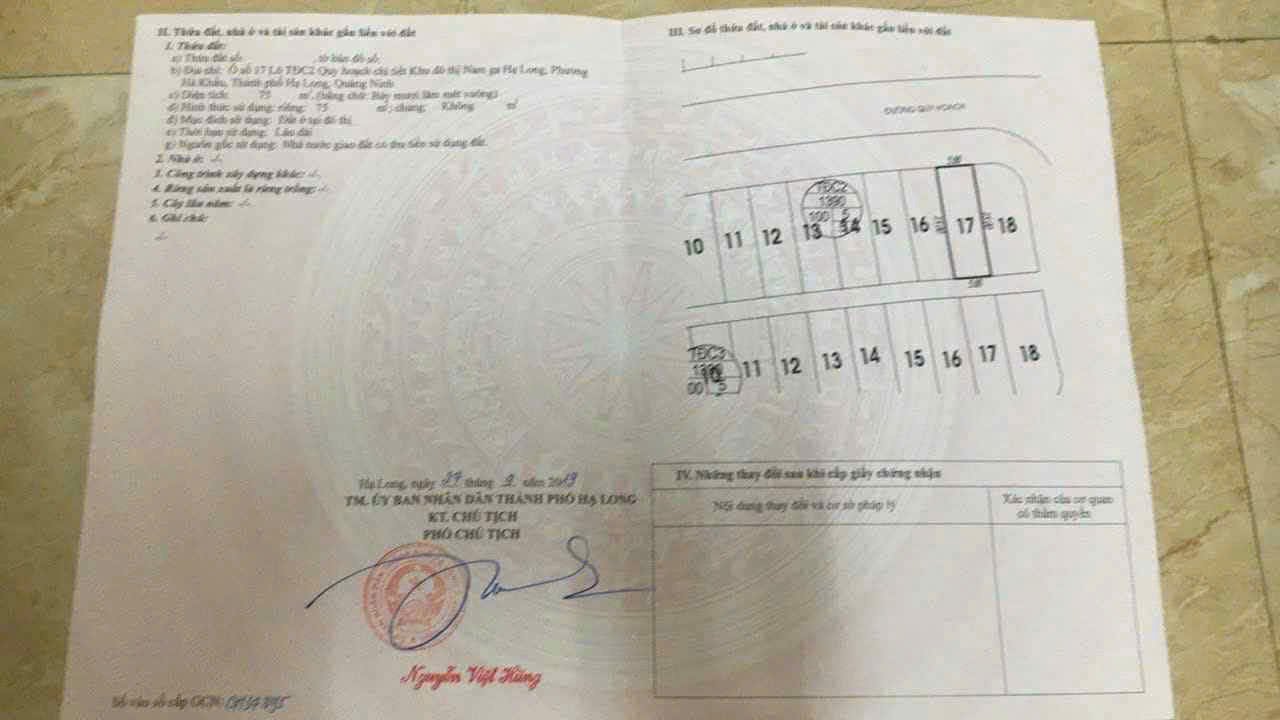 II. Thửa đất, nhà ở và tài sản khác gắn liền với đất
1. Thửa đất:
a) Thửa đất số: , tờ bản đồ số:
b) Địa chỉ: Ô số 17 Lô TĐC2 Quy hoạch chi tiết Khu đô thị Nam ga Hạ Long, Phường
Hà Khẩu, Thành phố Hạ Long, Quảng Ninh
c) Diện tích: 75 m², (bằng chữ: Bảy mươi lăm mét vuông)
d) Hình thức sử dụng: riêng: 75 m²; chung: Không m²
đ) Mục đích sử dụng: Đất ở tại đô thị
e) Thời hạn sử dụng: Lâu dài
g) Nguồn gốc sử dụng: Nhà nước giao đất có thu tiền sử dụng đất.
2. Nhà ở: -/-
3. Công trình xây dựng khác: -/-
4. Rừng sản xuất là rừng trồng: -/-
5. Cây lâu năm: -/-
6. Ghi chú:
-/-
Hạ Long, ngày 27 tháng 9 năm 2019
TM. ỦY BAN NHÂN DÂN THÀNH PHỐ HẠ LONG
KT. CHỦ TỊCH
PHÓ CHỦ TỊCH
Nguyễn Việt Hùng
Số vào sổ cấp GCN:
III. Sơ đồ thửa đất, nhà ở và tài sản khác gắn liền với đất
ĐƯỜNG QUY HOẠCH
TĐC2
1390
100 5
10 11 12 13 14 15 16 17 18
TĐC3
10 11 12 13 14 15 16 17 18
00 5
IV. Những thay đổi sau khi cấp giấy chứng nhận
Nội dung thay đổi và cơ sở pháp lý
Xác nhận của cơ quan
có thẩm quyền